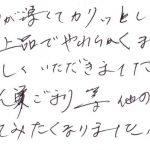 が薄くてカリッとし
上品でやわらかくま
しくいただきました
ごまり等他の
てみたくなりました